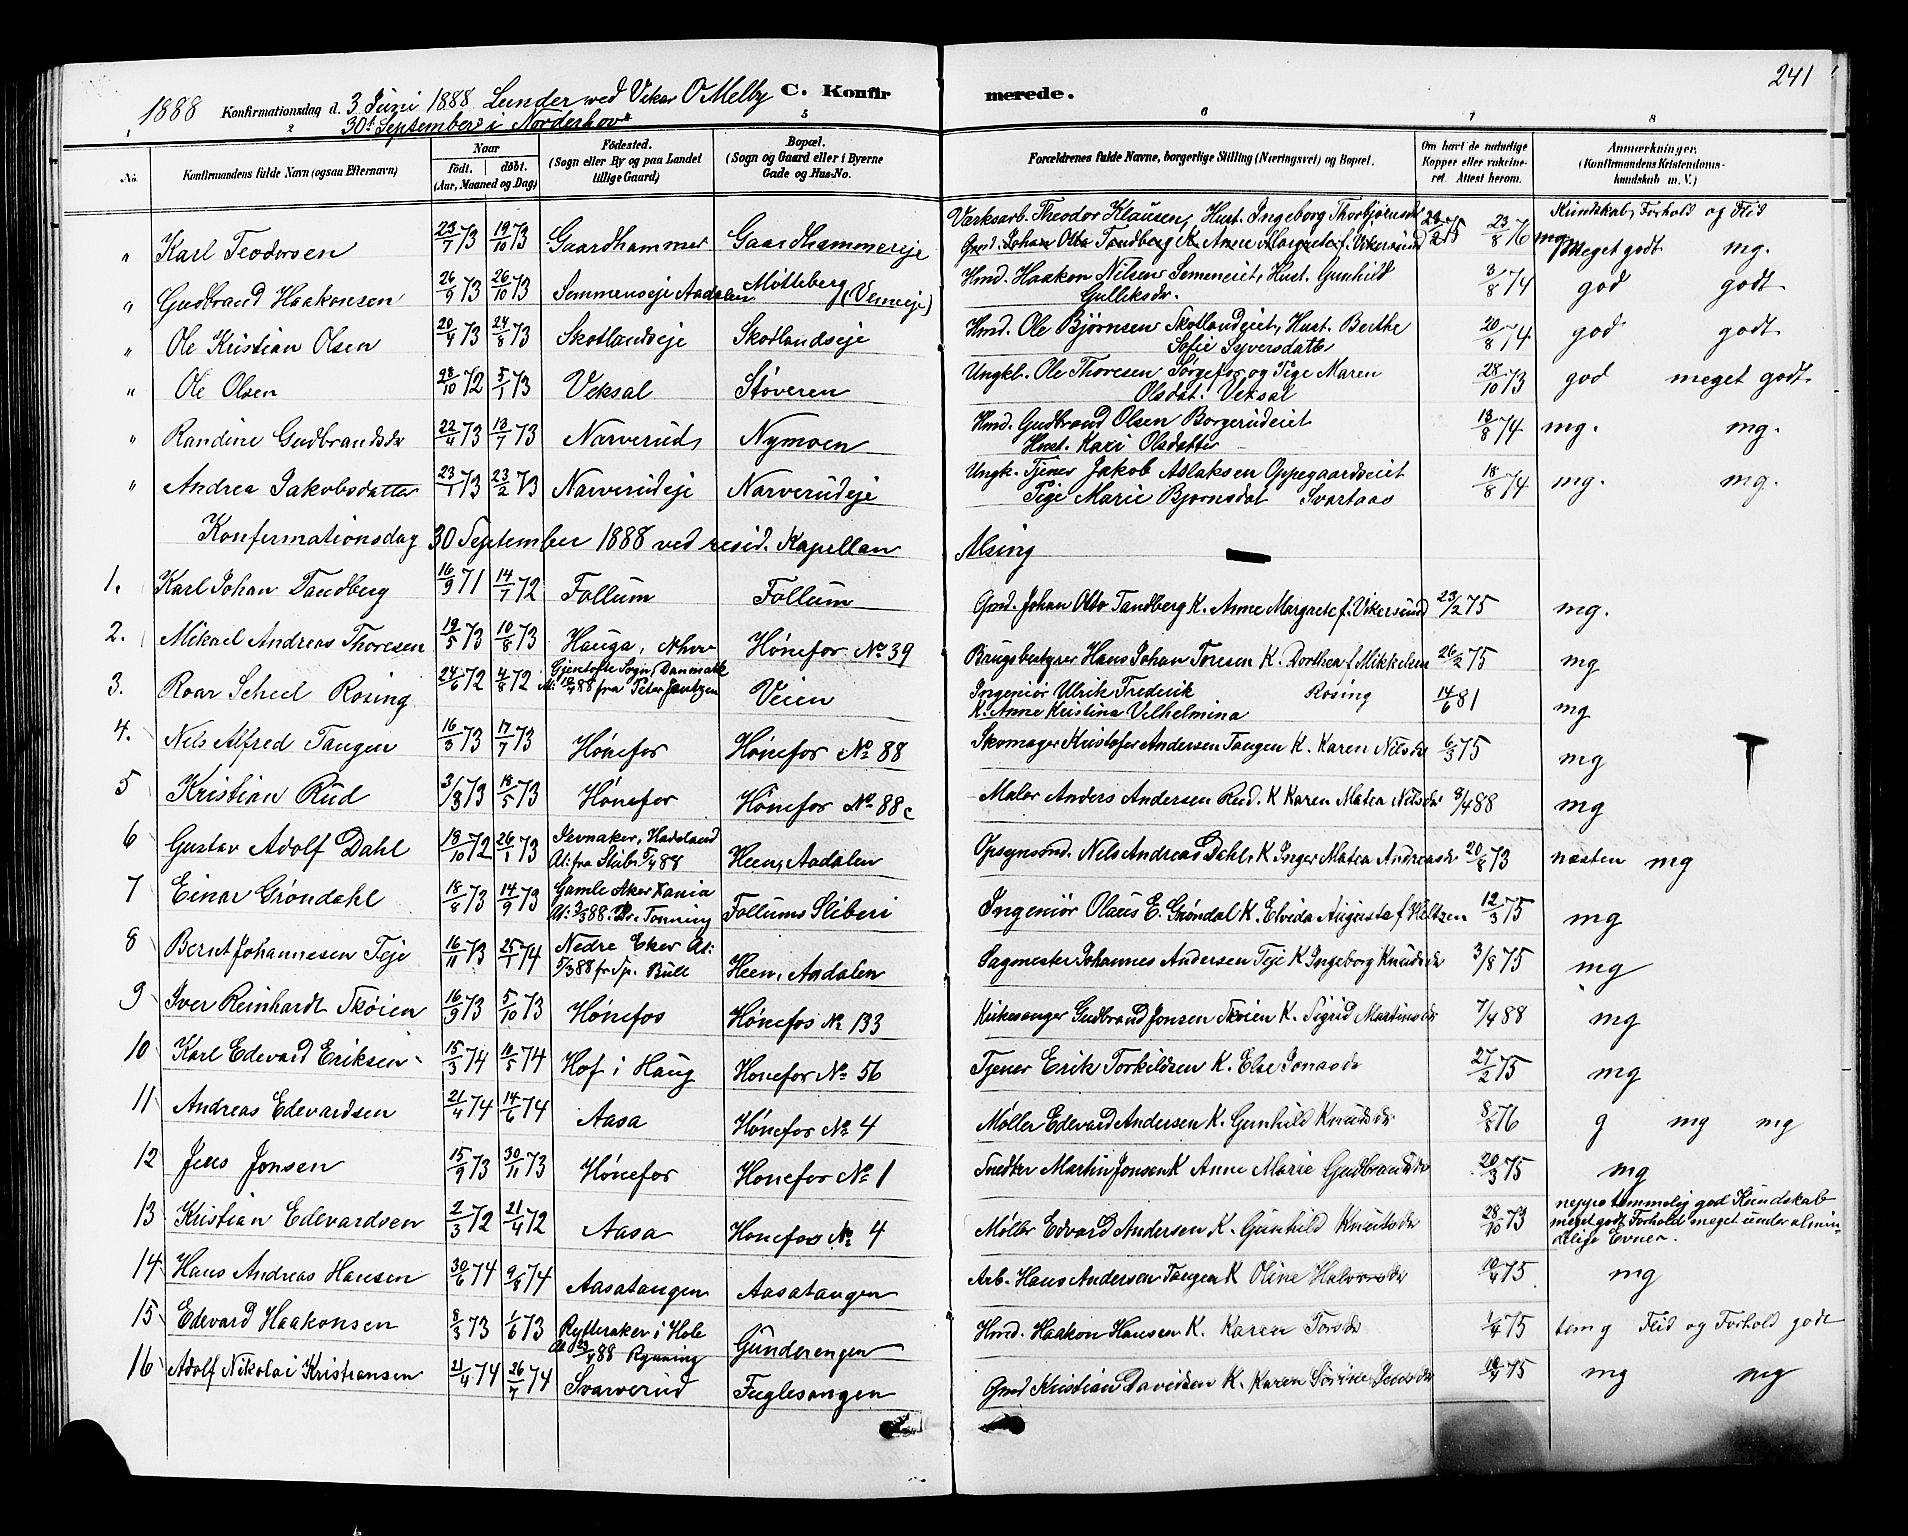 241
1888 Konfirmationsdag d. 3 Juni 1888 Lunder ved Vikar O Melby C. Konfirmerede.
30te September i Norderhov
1 2 5 6 7 8
No. Konfirmandens fulde Navn (ogsaa Efternavn) Naar født. døbt. (Aar, Maaned og Dag) Fødested. (Sogn eller By og paa Landet tillige Gaard) Bopæl. (Sogn og Gaard eller i Byerne Gade og Hus-No. Forældrenes fulde Navne, borgerlige Stilling (Næringsvei) og Bopæl. Om havt de naturlige Kopper eller vaccineret. Attest herom. Anmærkninger. (Konfirmandens Kristendomskundskab m. V.)
Kundskab, Forhold og Flid
" Karl Teodorsen 23/7 73 19/10 73 Gaardhammer Gaardhammereje Værksarb. Theodor Klausen, Hust. Ingeborg Thorbjørnsdr 23/8 76 Meget godt mg.
Gmd. Johan Otto Tandberg K. Anne Margrete f. Vikersund 23/2 75 mg
" Gudbrand Haakonsen 26/9 73 26/10 73 Semmenseje Aadalen Møtteberg (Vemeje) Hmd. Haakon Nilsen Semeneiet, Hust. Gunhild Gulliksdr. 3/8 74 god godt
" Ole Kristian Olsen 20/4 73 24/8 73 Skotlandseje Skotlandseje Hmd. Ole Bjørnsen Skotlandeiet, Hust. Berthe Sofie Syversdatter 20/8 74 god godt
" Ole Olsen 28/10 72 5/1 73 Veksal Støveren Ungkl. Ole Thoresen Sørgefos og Pige Maren Olsdat. Veksal 28/10 73 god meget godt
" Randine Gudbrandsdr 22/4 73 13/7 73 Narverud Nymoen Hmd. Gudbrand Olsen Borgerudeiet Hust. Kari Olsdatter 18/8 74 mg. mg.
" Andrea Jakobsdatter 23/1 73 23/2 73 Narverudeje Narverudeje Ungk. Tjener Jakob Aslaksen Oppegaardseiet Pige Marie Bjørnsdat Svartaas 18/8 74 mg. mg.
Konfirmationsdag 30 September 1888 ved resid. Kapellan Alsing
1. Karl Johan Tandberg 16/9 71 14/7 72 Follum Follum Gmd. Johan Otto Tandberg K. Anne Margrete f. Vikersund 23/2 75 mg.
2. Mikael Andreas Thoresen 19/5 73 10/8 73 Hauga, Nhov Hønefos No 39 Brugsbestyrer Hans Johan Toresen K. Dorthea f Mikkelsen 26/2 75 mg
3. Roar Scheel Rosing 24/6 72 4/8 72 Gjentofte Sogn, Danmark At: 12/4 88 fra Peter Jantzen Veien Ingeniør Ulrik Frederik Rosing K. Anne Kristina Vilhelmina 14/6 81 mg
4. Nils Alfred Tangen 16/3 73 17/7 73 Hønefos Hønefos No 88 Skomager Kristofer Andersen Tangen K. Karen Nilsdr 6/3 75 mg
5 Kristian Rud 3/3 73 18/5 73 Hønefos Hønefos No 88c Maler Anders Andersen Rud. K Karen Matea Nilsdr 8/4 88 mg
6 Gustav Adolf Dahl 18/10 72 26/1 73 Jevnaker, Hadeland At: fra Stabr 5/4 88 Heen, Aadalen Opsynsmd. Nils Andreas Dahl, K Inger Matea Andreasdr 20/8 73 næsten mg
7 Einar Grøndahl 18/8 73 14/9 73 Gamle Aker Xania At: 3/3 88. Dr. Tonning Follums Sliberi Ingeniør Olaus E. Grøndal K. Elvida Augusta f Heltzen 12/3 75 mg
8 Bernt Johannesen Teje 16/11 73 25/1 74 Nedre Eker At: 5/3 88 fr Sp. Bull Heen, Aadalen Sagmester Johannes Andersen Teje K Ingeborg Knudsdr 3/8 75 mg
9 Iver Reinhardt Skøien 16/9 73 5/10 73 Hønefos Hønefos No 133 Kirkesanger Gudbrand Jonsen Skøien K. Sigrid Martinsdr 7/4 88 mg
10 Karl Edevard Eriksen 15/3 74 10/5 74 Hof i Haug Hønefos No 56 Tjener Erik Torkildsen K. Else Jonasdr 27/2 75 mg
11 Andreas Edevardsen 21/4 74 14/6 74 Aasa Hønefos No 4 Møller Edevard Andersen K. Gunhild Knudsdr. 8/8 76 g mg mg
12 Jens Jonsen 15/9 73 30/11 73 Hønefos Hønefos No 1 Snedker Martin Jonsen K Anne Marie Gudbrandsdr 20/3 75 mg
13 Kristian Edevardsen 2/3 72 21/4 72 Aasa Hønefos No 4 Møller Edvard Andersen K. Gunhild Knutsdr 28/10 73 neppe temmelig god Kundskab meget godt Forhold meget under almindelige Evner.
14 Hans Andreas Hansen 30/6 74 9/8 74 Aasatangen Aasatangen Arb. Hans Andersen Tangen K Oline Halvorsdr 10/4 75 mg
15 Edevard Haakonsen 8/3 73 1/6 73 Rytteraker i Hole At 23/4 88 Rynning Gunderengen Hmd. Haakon Hansen K. Karen Torsdr 1/4 75 tem g Flid og Forhold godt
16 Adolf Nikolai Kristiansen 21/4 74 26/7 74 Svarverud Fuglesangen Gmd Kristian Davidsen K. Karen Sørine Jensdr 10/4 75 mg mg